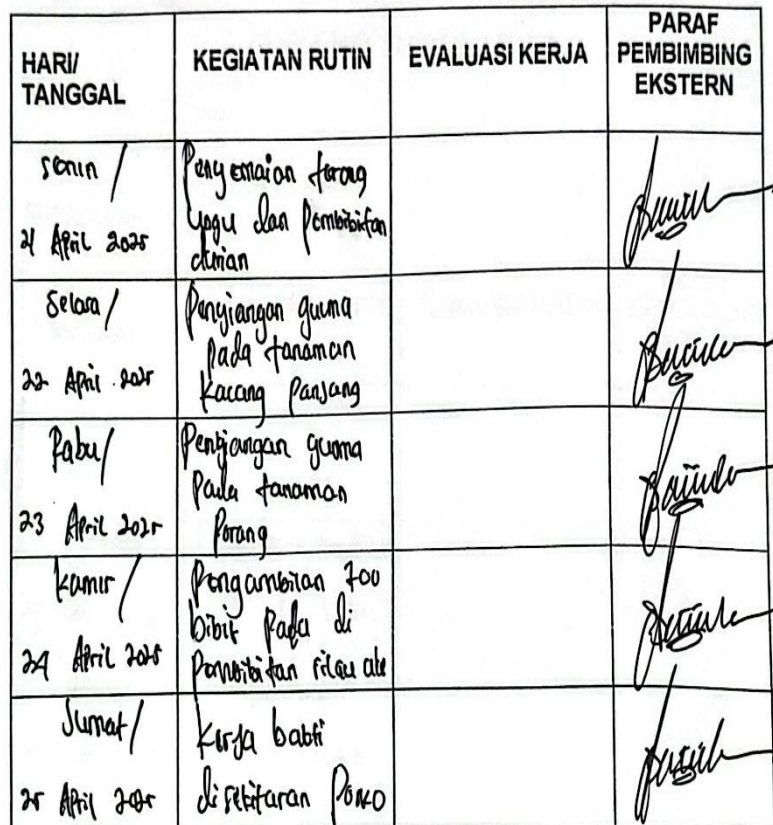 HARI/
TANGGAL
KEGIATAN RUTIN
EVALUASI KERJA
PARAF
PEMBIMBING
EKSTERN
Senin /
21 April 2025
Penyemaian terong
ungu dan Pembibitan
durian
Selasa /
22 April 2025
Penyiangan gulma
pada tanaman
Kacang Panjang
Rabu /
23 April 2025
Penyiangan gulma
Pada tanaman
Porang
Kamis /
24 April 2025
Pengambilan 700
bibit Pada di
Pembibitan
Jumat /
25 April 2025
Kerja bakti
disekitaran